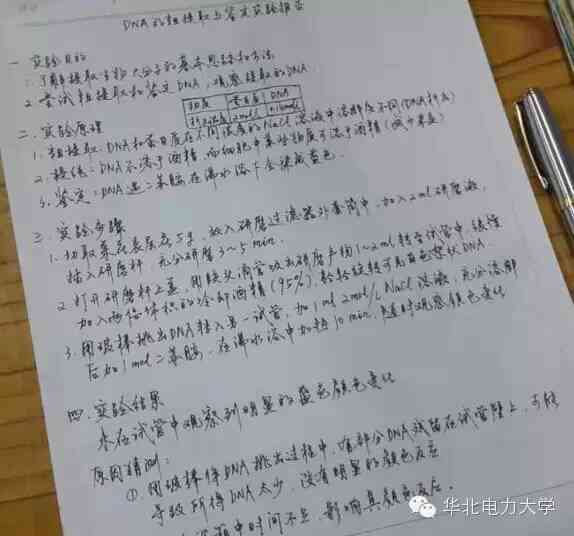 DNA的粗提取与鉴定实验报告
一. 实验目的
1. 了解提取生物大分子的基本思路和方法
2. 尝试粗提取和鉴定DNA, 观察提取的DNA.
二. 实验原理
蛋白质 DNA
1. 粗提取: DNA和蛋白质在不同浓度的NaCl溶液中溶解度不同(DNA析出)
2. 提纯: DNA不溶于酒精, 而细胞中某些物质可溶于酒精
3. 鉴定: DNA遇二苯胺在沸水浴下会染成蓝色.
三. 实验步骤
1. 切取菜花表层花5g, 放入研磨过滤器外套筒中, 加入2ml研磨液,
插入研磨杆, 充分研磨3~5min.
2. 打开研磨杆上盖, 用胶头滴管吸出研磨产物1~2ml转至试管中, 缓慢
加入两倍体积的冷却酒精(95%), 轻轻旋转可见白色絮状DNA.
3. 用玻棒挑出DNA转入另一试管, 加1ml 2mol/L NaCl溶液, 充分溶解
后加1ml二苯胺, 在沸水浴中加热10min, 随时观察颜色变化
四. 实验结果
未在试管中观察到明显的蓝色颜色变化
原因猜测:
① 用玻棒将DNA挑出过程中, 有部分DNA残留在试管壁上, 可能
导致所得DNA太少, 没有明显的颜色反应
时间不足, 影响其颜色反应.
华北电力大学